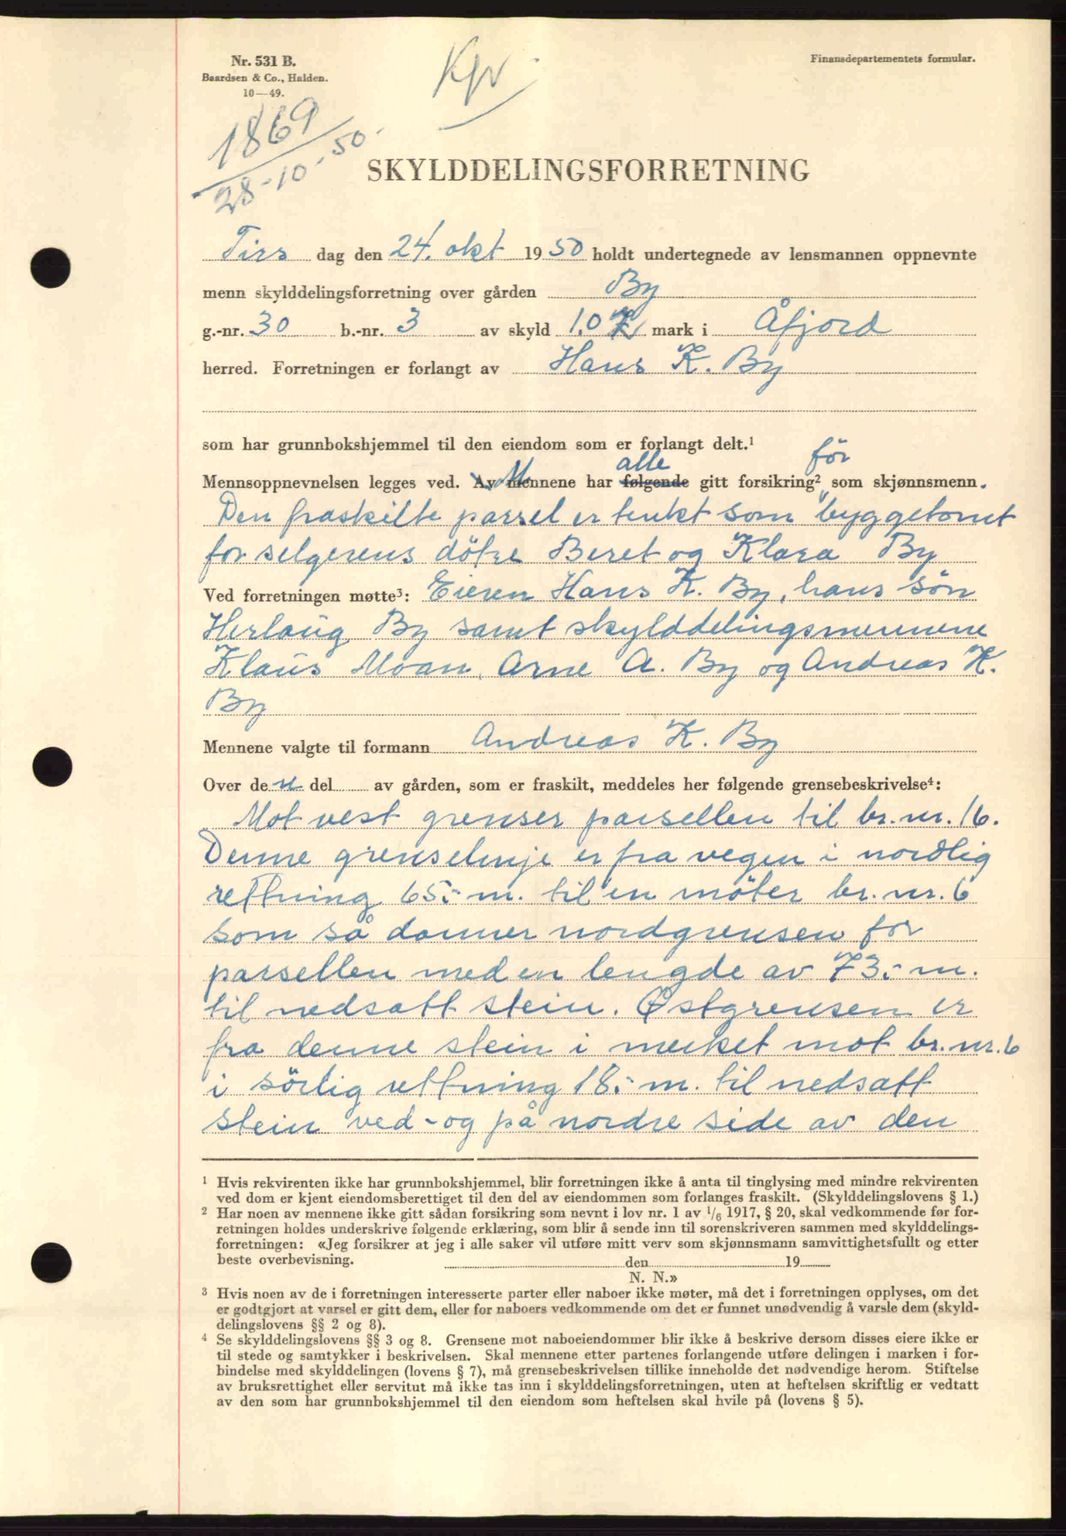 Nr. 531 B.
Baardsen & Co., Halden.
10—49.
Kpv
Finansdepartementets formular.
1869
28-10-50
SKYLDDELINGSFORRETNING
Tirs dag den 24. okt 1950 holdt undertegnede av lensmannen oppnevnte
menn skylddelingsforretning over gården By
g.-nr. 30 b.-nr. 3 av skyld 1,07 mark i Åfjord
herred. Forretningen er forlangt av Hans K. By
som har grunnbokshjemmel til den eiendom som er forlangt delt.¹
alle før
Mennsoppnevnelsen legges ved. Av Mennene har følgende gitt forsikring², som skjønnsmenn.
Den fraskilte parsel er tenkt som byggetomt
for selgerens døtre Beret og Klara By
Ved forretningen møtte³: Eieren Hans K. By, hans søn
Herlaug By samt skylddelingsmennene
Klaus Moan, Arne A. By og Andreas K.
By
Mennene valgte til formann Andreas K. By
Over den del av gården, som er fraskilt, meddeles her følgende grensebeskrivelse⁴:
Mot vest grenser parsellen til br.nr. 16.
Denne grenselinje er fra vegen i nordlig
rettning 65.- m. til en møter br.nr. 6
som så danner nordgrensen for
parsellen med en lengde av 73.- m.
til nedsatt stein. Østgrensen er
fra denne stein i merket mot br.nr. 6
i sørlig rettning 18.- m. til nedsatt
stein ved - og på nordre side av den
¹ Hvis rekvirenten ikke har grunnbokshjemmel, blir forretningen ikke å anta til tinglysing med mindre rekvirenten
ved dom er kjent eiendomsberettiget til den del av eiendommen som forlanges fraskilt. (Skylddelingslovens § 1.)
² Har noen av mennene ikke gitt sådan forsikring som nevnt i lov nr. 1 av 1/6 1917, § 20, skal vedkommende før for-
retningen holdes underskrive følgende erklæring, som blir å sende inn til sorenskriveren sammen med skylddelings-
forretningen: «Jeg forsikrer at jeg i alle saker vil utføre mitt verv som skjønnsmann samvittighetsfullt og etter
beste overbevisning. den 19
N. N.»
³ Hvis noen av de i forretningen interesserte parter eller naboer ikke møter, må det i forretningen opplyses, om det
er godtgjort at varsel er gitt dem, eller for naboers vedkommende om det er funnet unødvendig å varsle dem (skyld-
delingslovens §§ 2 og 8).
⁴ Se skylddelingslovens §§ 3 og 8. Grensene mot naboeiendommer blir ikke å beskrive dersom disses eiere ikke er
til stede og samtykker i beskrivelsen. Skal mennene etter partenes forlangende utføre delingen i marken i for-
bindelse med skylddelingen (lovens § 7), må grensebeskrivelsen tillike inneholde det nødvendige herom. Stiftelse
av bruksrettighet eller servitut må ikke tas inn i skylddelingsforretningen, uten at heftelsen skriftlig er vedtatt
av den som har grunnbokshjemmel til den eiendom som heftelsen skal hvile på (lovens § 5).